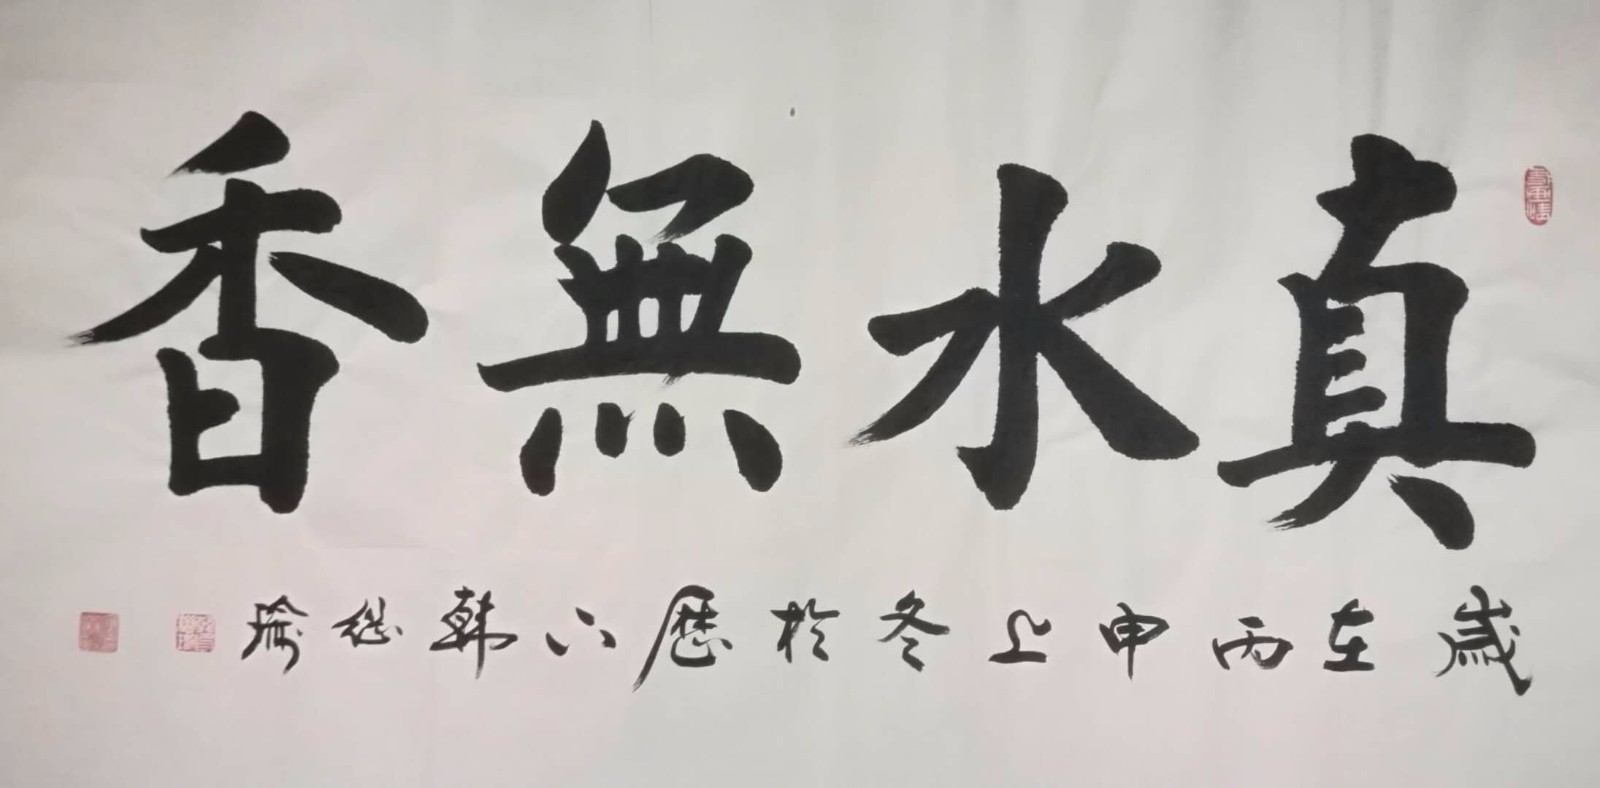 真水無香
歲在丙申上冬於歷下韩继瑜